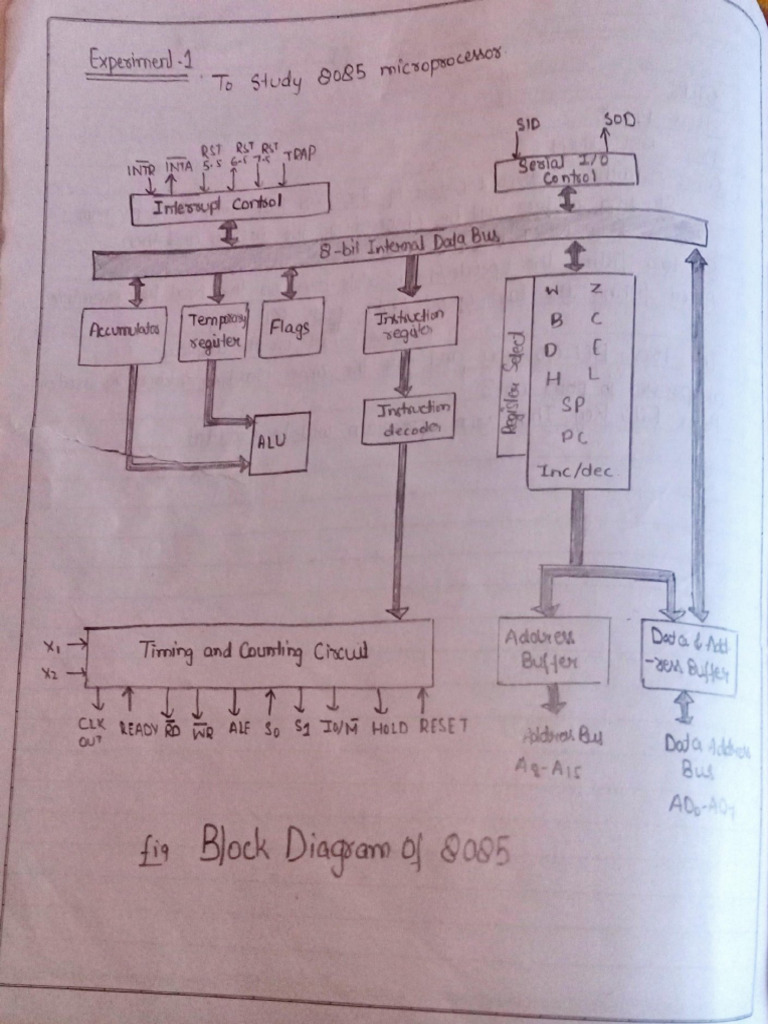 Experiment-1
To Study 8085 microprocessor.
SID
SOD
INTR INTA RST 5.5 RST 6.5 RST 7.5 TRAP
Serial I/O
Control
Interrupt Control
8-bit Internal Data Bus
Accumulator
Temporary
register
Flags
Instruction
register
Register Select
W Z
B C
D E
H L
SP
PC
Inc/dec
Instruction
decoder
ALU
X1
X2
Timing and Counting Circuit
Address
Buffer
Data & Add
-ress Buffer
CLK
OUT
READY RD WR ALE S0 S1 IO/M HOLD RESET
Address Bus
A8-A15
Data Address
Bus
AD0-AD7
fig Block Diagram Of 8085